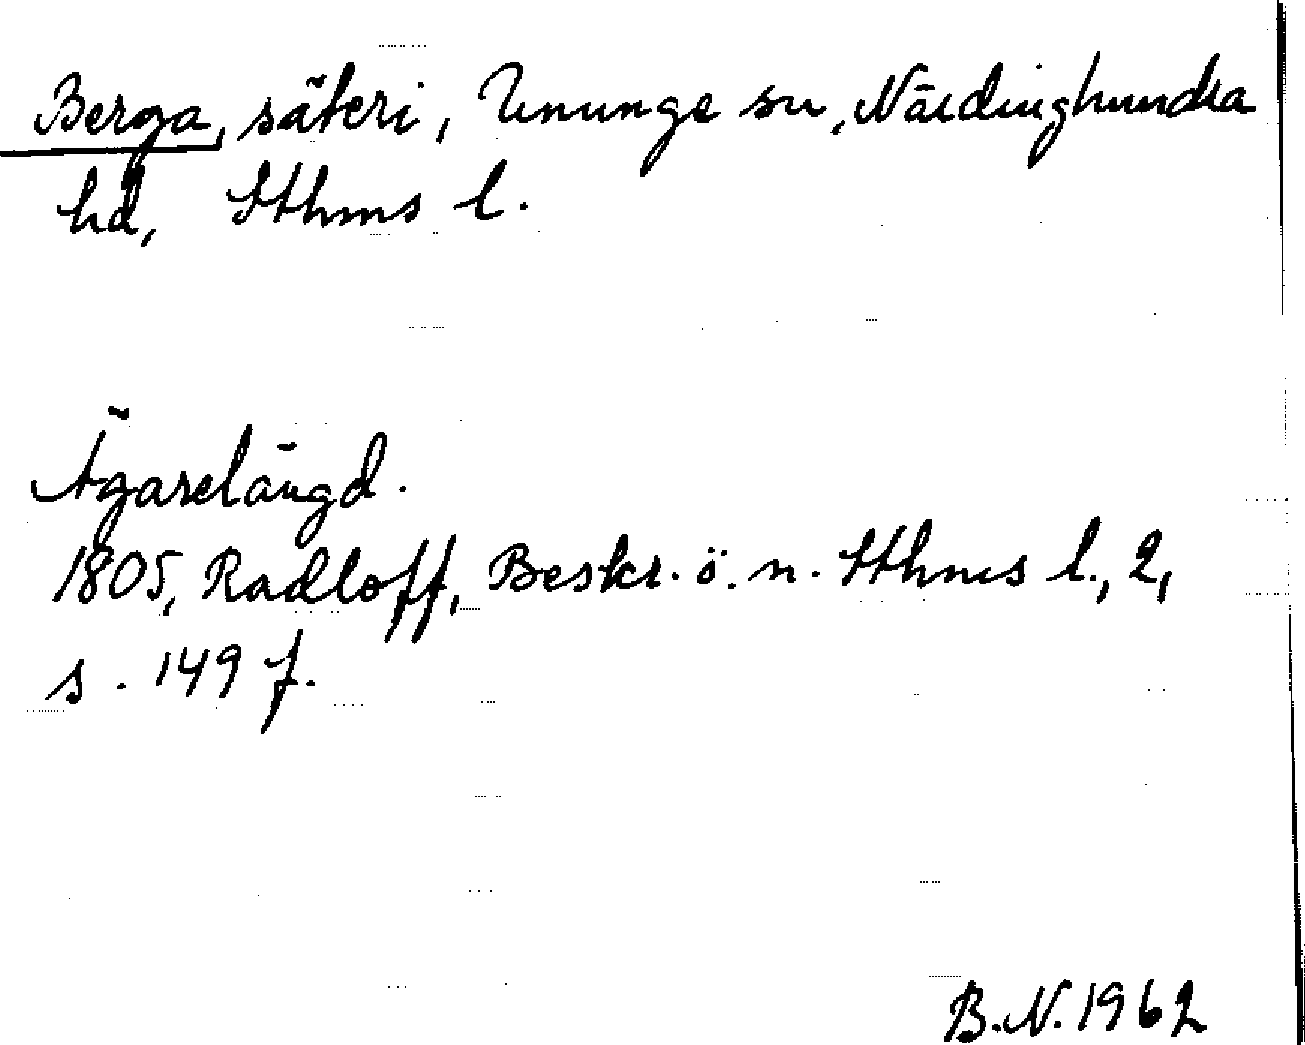 Berga, säteri, Ununge sn, Närdinghundra
hd, Sthms l.
Ägarelängd.
1805, Radloff, Beskr. ö. n. Sthms l., 2,
s. 149 f.
B.N. 1962